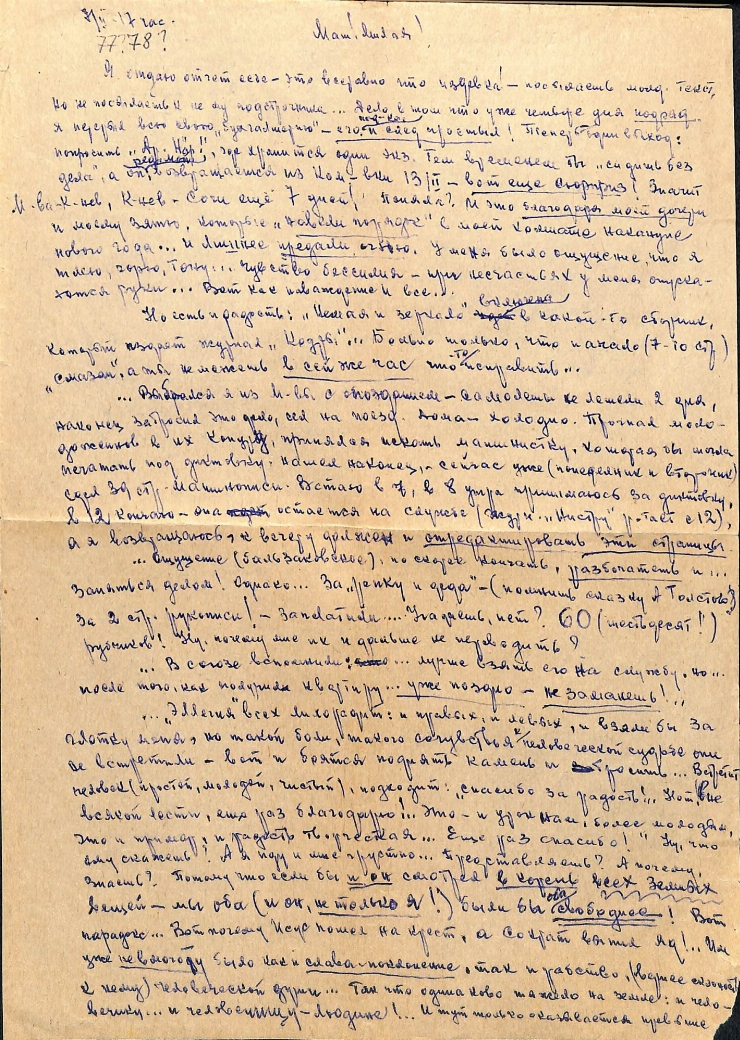 8/II - 17 час.
77? 78?
Мат! Милая!
Я отдаю отчет себе – это всеравно что издевка! – посылаешь молд. текст,
но не посылаешь к нему подстрочника... Дело в том что уже четвере дня подряд
я перерыл всю свою „бухгалтерию" – его и след простыл! Теперь один выход:
попросить „Ар. Нор", где хранится один экз. Тем временем ты „сидишь без
дела", а он возвращается из Ком-вки 13/II – вот еще сюрприз! Значит
М-ва-К-нев, К-нев-Сочи ещё 7 дней! Поняла? И это благодаря моей дочери
и моему зятю, которые „навели порядок" в моей комнате накануне
нового года... и лишнее предали огню. У меня было ощущение, что я
тлею, горю, тону... Чувство бессилия – при несчастьях у меня опуска-
ются руки... Вот как наваждение и все...
Но есть и радость: „ и зеркало" включена в какой-то сборник,
который издает журнал „Кодры"... Больно только, что начало (7-10 стр)
„смазал", а ты не можешь в сей же час что-то исправить...
... Выбрался я из М-вы с опозданием – самолеты не летели 2 дня,
наконец забросил это дело, сел на поезд. Дома – холодно. Прогнал моло-
доженов в их конуру, принялся искать машинистку, которая бы могла
печатать под диктовку. Нашел наконец, – сейчас уже (понедельник и вторник)
сдел 30 стр. машинописи. Встаю в 7, в 8 утра принимаюсь за диктовку,
в 12 кончаю – она остается на службе (журн. „Нистру" р-тает с 12),
а я возвращаюсь, к вечеру должен и отредактировать эти страницы.
... Ощущение (бальзаковское), по скорее кончать, разбогатеть и...
заняться делом! Однако... За „репку и деда" – (помнишь сказку А Толстого?)
за 2 стр. рукописи! – заплатили... Угадаешь, нет? 60 (шестьдесят!!)
рубчиков! Ну, почему мне их и дальше не переводить?
... В союзе вспомнили: ... лучше взять его на службу, но...
после того, как получили квартиру... уже поздно – не заманешь!..
... „Элегия" всех лихорадит: и правых, и левых, и взяли бы за
глотку меня, но такой боли, такого сочувствья к человеческой судьбе они
не встретили – вот и боятся поднять камень и бросить... Встретит
человек (простой, молодой, чистый), подходит: „спасибо за радость!.. Нот, вне
всякой лести, еще раз благодарю!... Это – и урок нам, более молодым,
это и пример, и радость творческая... Еще раз спасибо!" Ну, что
ему скажешь? А я иду и мне грустно... Представляешь? А почему,
знаешь? Потому что если бы и он смотрел в корень всех земных
вещей – мы оба (и он, не только я!) были бы оба свободнее! Вот
парадокс... Вот почему Исус пошел на крест, а Сократ выпил яд!.. Им
уже невмогоду было как и слава-поклонение, так и рабство, (вернее склонность
к нему) человеческой души... Так что одинаково тяжело на земле: и чело-
вечику... и человечищу-людине!... И тут только оказывается превыше